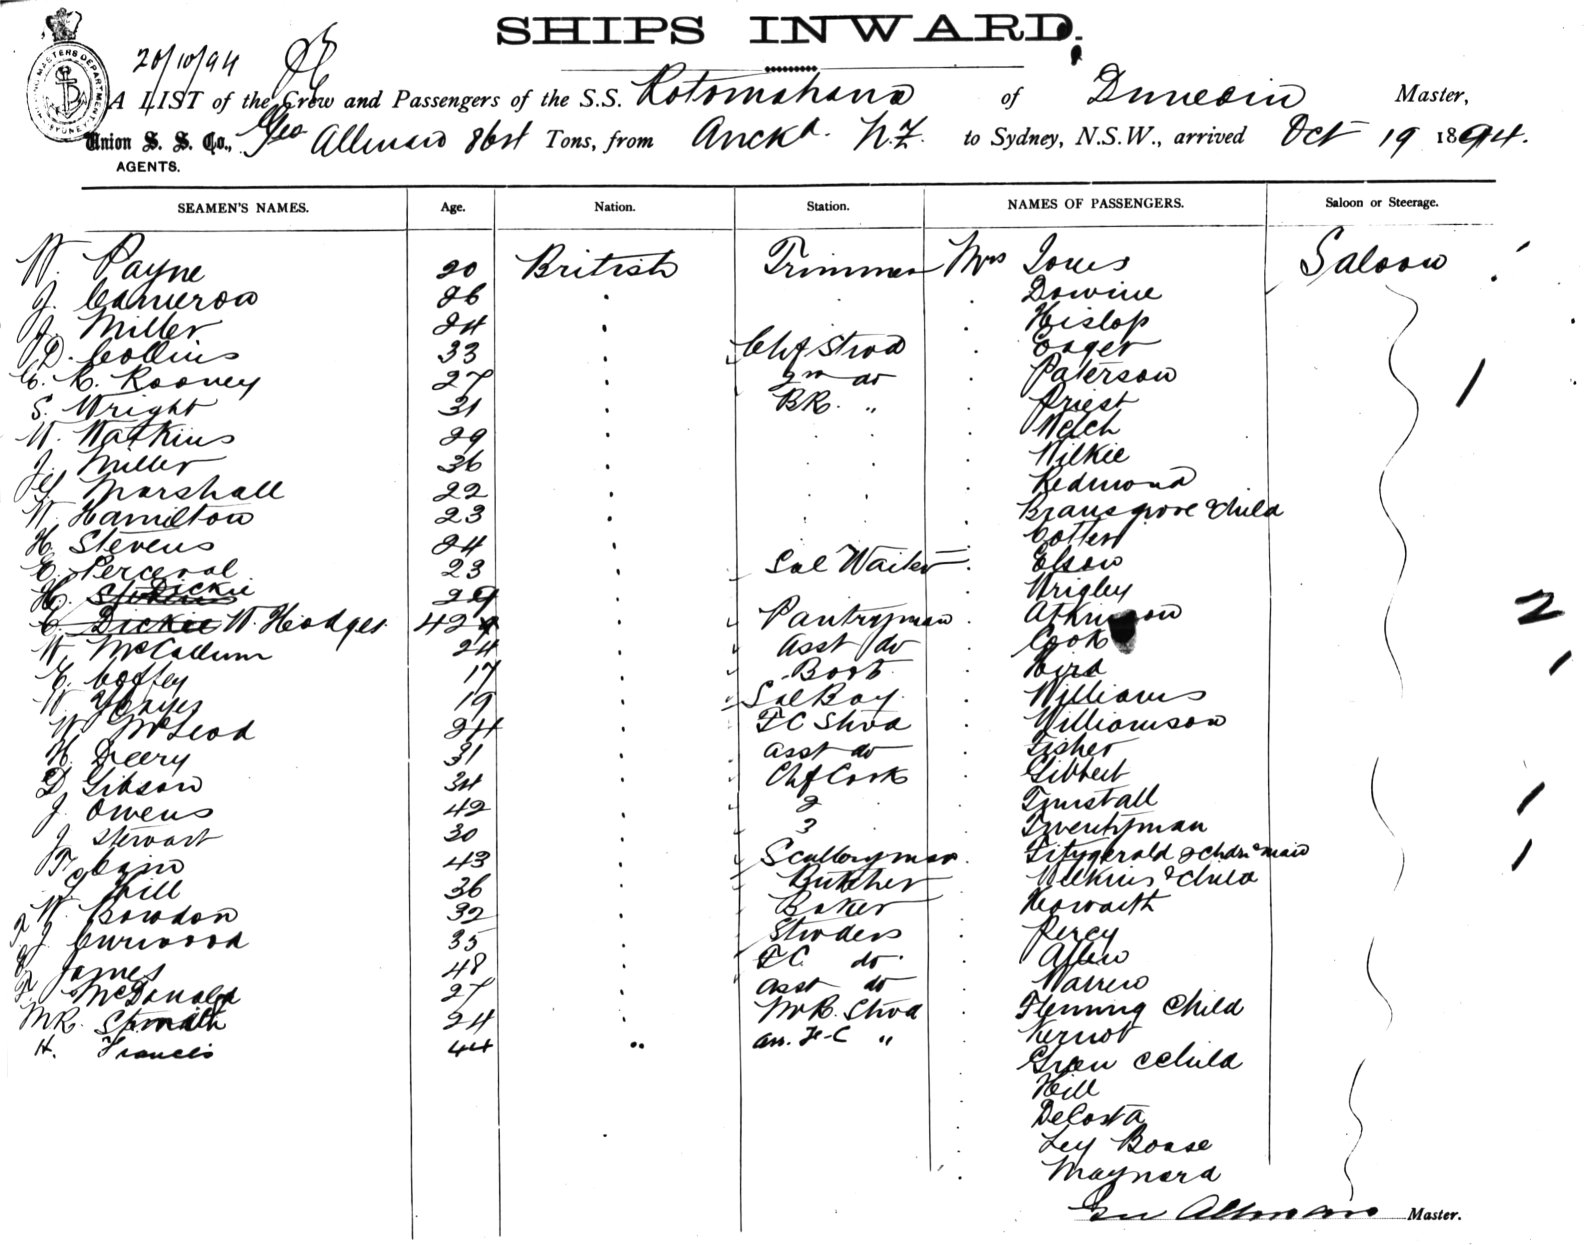 SHIPS INWARD.
20/10/94
A LIST of the Crew and Passengers of the S.S. Rotomahana of Dunedin Master,
Union S. S. Co., Geo Allman 864 Tons, from Auckd. N.Z. to Sydney, N.S.W., arrived Oct 19 1894.
AGENTS.
SEAMEN'S NAMES. Age. Nation. Station. NAMES OF PASSENGERS. Saloon or Steerage.
W. Payne 20 British Trimmer Mrs Jones Saloon
J. Cameron 26 Downie
J. Miller 24 Hislop
D. Collins 33 Chf Stwd Eager
C. R. Rooney 27 2nd do Paterson
S. Wright 31 BR. " Priest
W. Watkins 29 Welch
J. Miller 36 Wilkie
Marshall 22 Redmond
W. Hamilton 23 Bransgrove & child
H. Stevens 24 Cotter
C. Perceval 23 Sal Waiter Elson
H. Dickie 29 Wrigley
C. Dickie W. Hodges 42 Pantryman Atkinson
W. McCallum 24 Asst do Cook
C. Coffey 17 Boots Bird
W. Hayes 19 Sal Boy Williams
W. McLeod 24 F C Stwd Williamson
H. Deery 31 Asst do Fisher
D. Gibson 34 Chf Cook Gibbert
J. Owens 42 2 Tunstall
J. Stewart 30 3 Twentyman
T. Cain 43 Sculleryman Fitzgerald & maid
Hill 36 Butcher Wilkins & child
W. Bowdon 32 Baker Howarth
J. Curwood 35 Stwdess Percy
James 48 F.C. do Allen
F. McDonald 27 Asst do Warren
MR. Smith 24 M.R. Stwd Fleming Child
H. Francis 44 " ass. F-C " Vernot
Green & Child
Hill
DeCosta
Ley Boase
Maynard
Geo Allman Master.